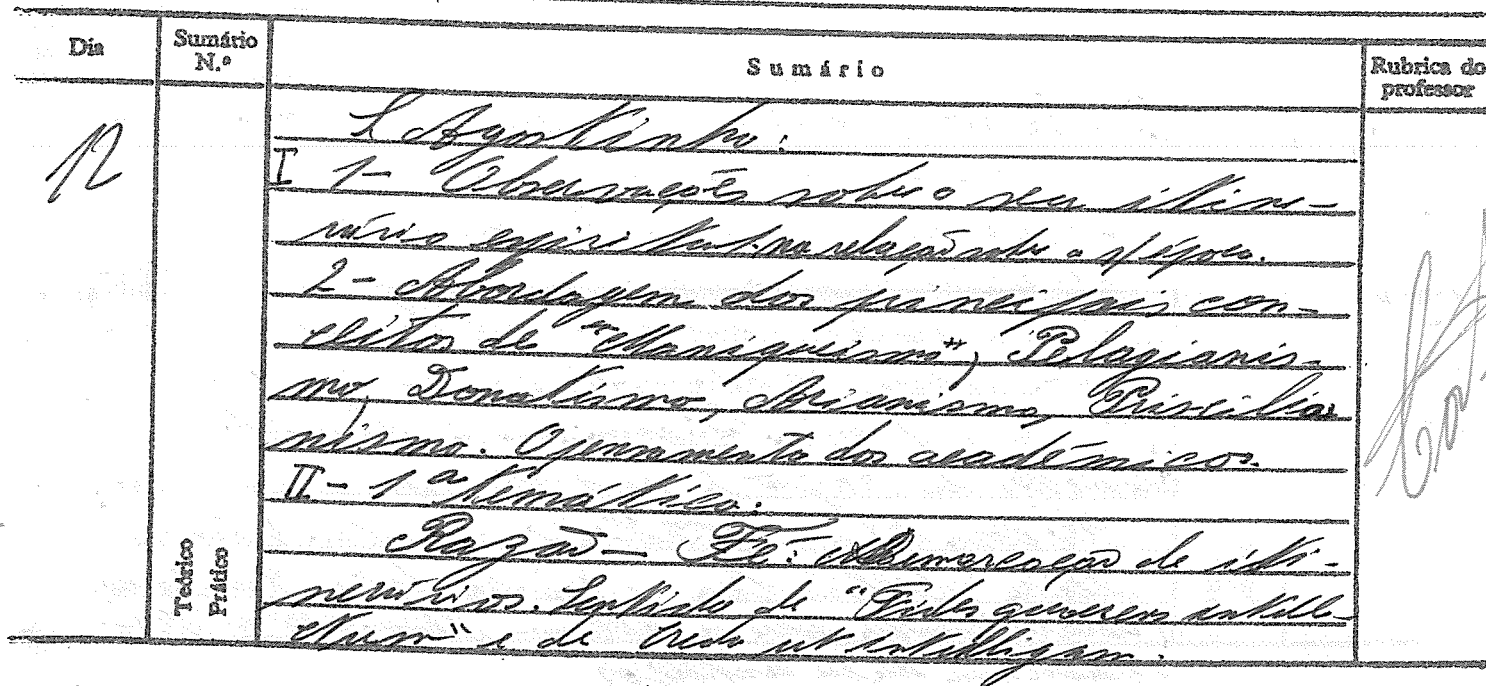 Dia
Sumário N.º
Sumário
Rubrica do professor
12
S. Agostinho:
I 1- Observações sobre o seu itine-
rário espiritual na relação sobre a s/ época.
2- Abordagem dos principais con-
ceitos de "Maniqueismo", Pelagianis-
mo, Donatismo, Arianismo, Priscilia-
nismo. O pensamento dos académicos.
II - 1ª temática:
Razão - Fé: Demarcação de iti-
nerários. Sentido de "Fides quaerens intelle-
ctum" e de Credo ut intelligam.
Teórico
Prático